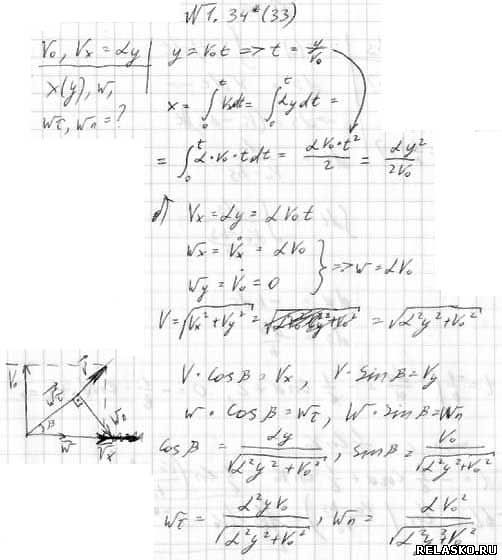 №1.34*(33)
V₀, Vx = αy
x(y), w,
wτ, wn = ?
y = V₀t => t = y/V₀
x = ∫₀ᵗ Vxdt = ∫₀ᵗ αy dt =
= ∫₀ᵗ α·V₀·t dt = αV₀·t²/2 = αy²/2V₀
б) Vx = αy = αV₀t
wx = V̇x = αV₀
wy = V̇₀ = 0 } => w = αV₀
V = √(Vx²+Vy²) = √(α²y²+V₀²)
V·cosβ = Vx, V·sinβ = Vy
w·cosβ = wτ, w·sinβ = wn
cosβ = αy/√(α²y²+V₀²), sinβ = V₀/√(α²y²+V₀²)
wτ = α²yV₀/√(α²y²+V₀²), wn = αV₀²/√(α²y²+V₀²)
V₀ V wτ wn β w Vx
RELASKO.RU